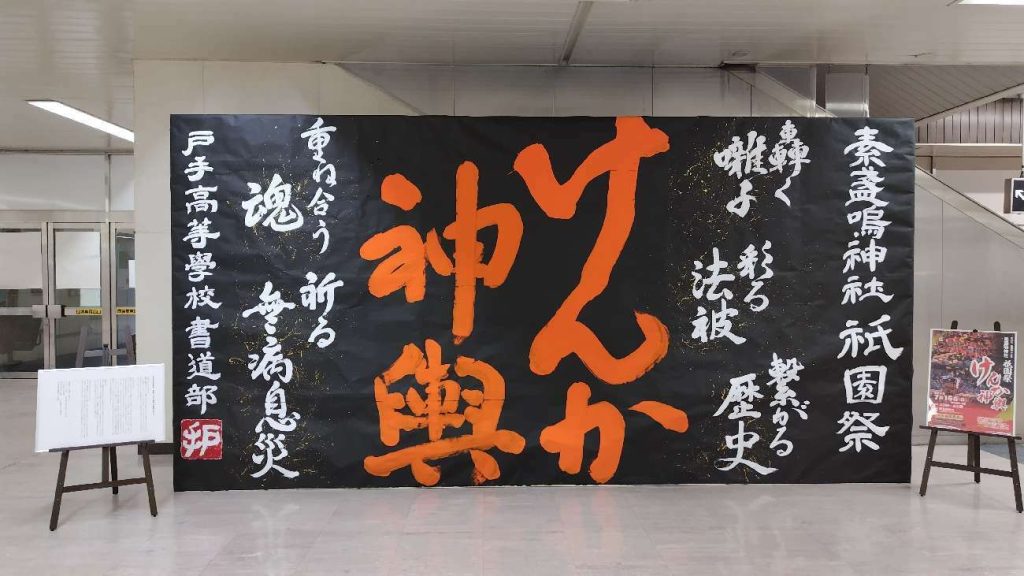 素盞嗚神社 祇園祭
轟く
囃子
彩る
法被
繋がる
歴史
けんか
神輿
重ね合う
魂
祈る
無病息災
戸手高等學校書道部
けんか
神輿